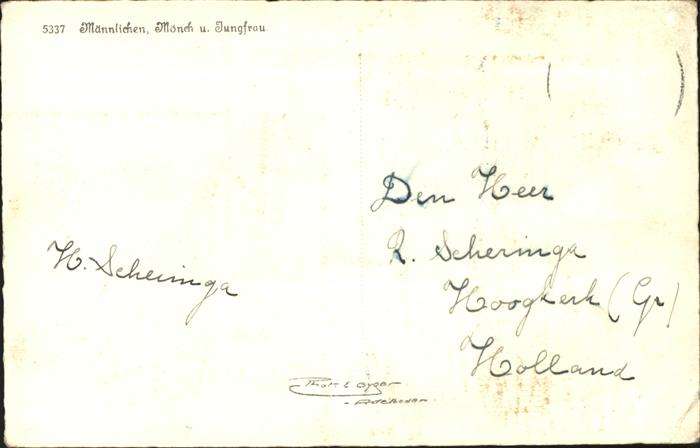 5337 Männlichen, Mönch u. Jungfrau.
Den Heer
R. Scheringa
H. Scheringa
Hoogkerk (Gr)
Holland
Phot. E. Gyger
Adelboden